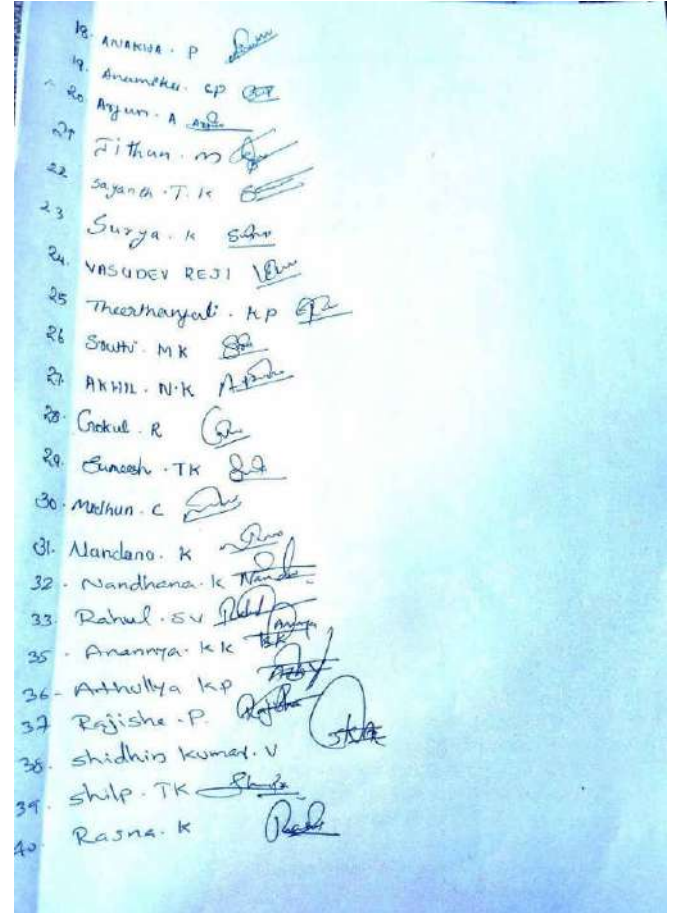 18. ANAKHA. P
19. Anamika. CP
20. Arjun. A Arjun
21 Jithun. m
22 Sayanth. T. K
23 Surya. K Surya
24. VASUDEV REJI
25 Theerthanjali. K P
26 Sruthi. MK
27. AKHIL. N.K
28. Gokul. R
29. Suneesh. TK
30. Midhun. C
31. Nandana. K
32. Nandhana. K Nanda
33. Rahul. SV Rahul
35. Anannya. KK
36. Arthullya KP
37 Rajisha. P.
38. Shidhin Kumar. V
39. Shilp. TK
40. Rasna. K